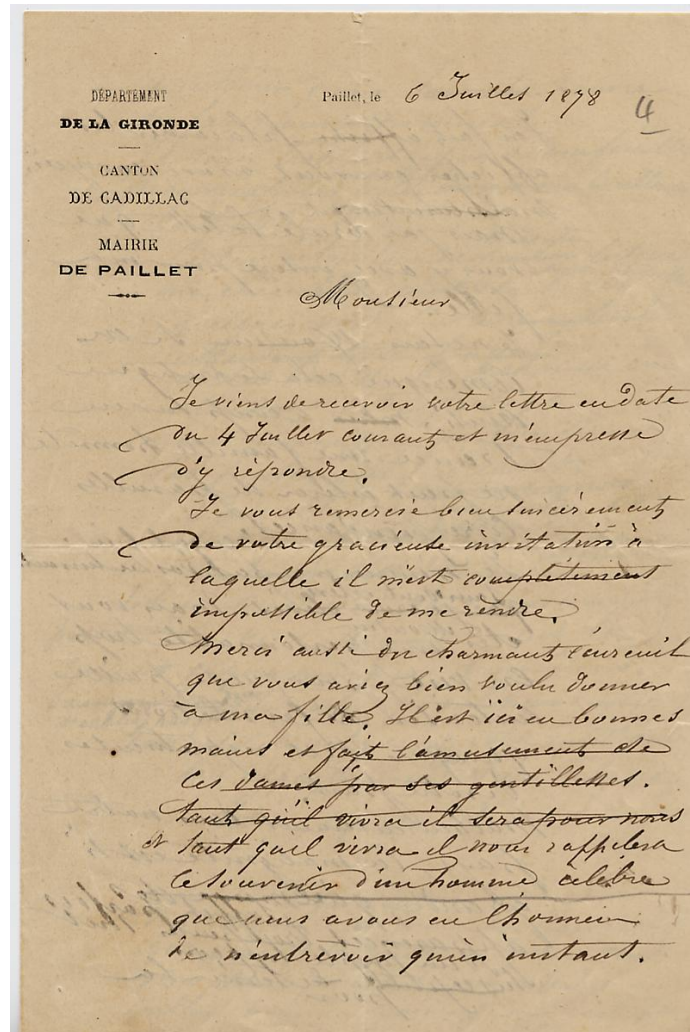 DÉPARTEMENT
DE LA GIRONDE
CANTON
DE CADILLAC
MAIRIE
DE PAILLET
Paillet, le 6 Juillet 1878
4
Monsieur
Je viens de recevoir votre lettre en date
du 4 Juillet courant et m'empresse
d'y répondre.
Je vous remercie bien sincèrement
de votre gracieuse invitation à
laquelle il m'est complètement
impossible de me rendre.
Merci aussi du charmant écureuil
que vous aviez bien voulu donner
à ma fille. Il est ici en bonnes
mains et fait l'amusement de
ces dames par ses gentillesses.
Tant qu'il vivra il sera pour nous
et tant qu'il vivra il nous rappellera
le souvenir d'un homme célèbre
que nous avons eu l'honneur
de n'entrevoir qu'un instant.